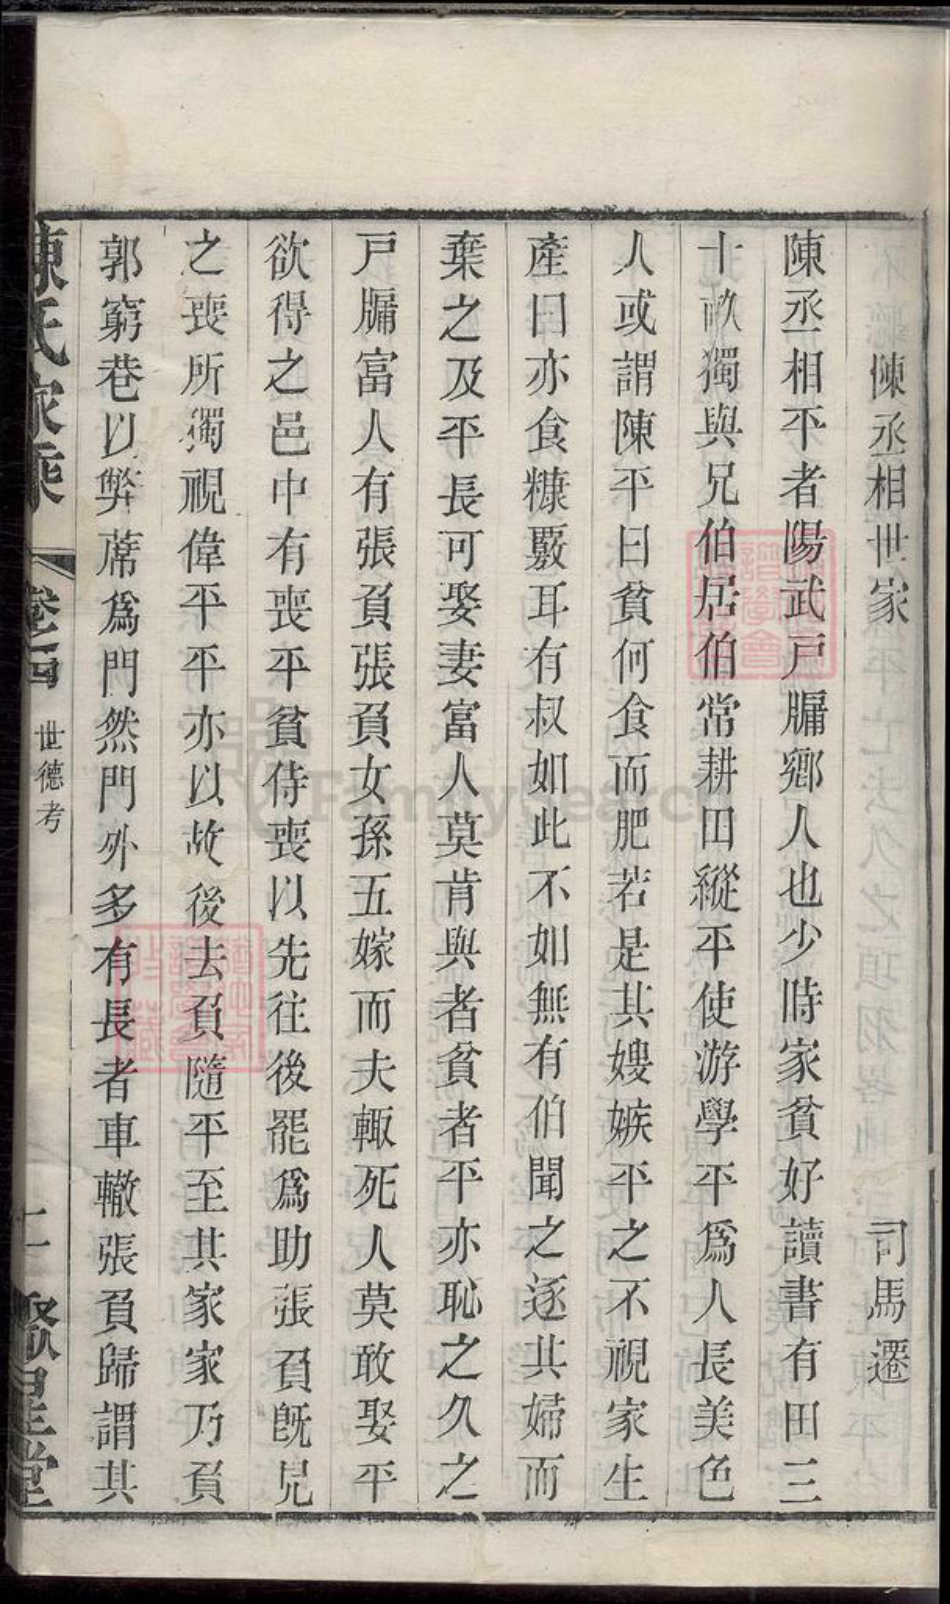 陳丞相世家 司馬遷
陳丞相平者陽武戸牖鄉人也少時家貧好讀書有田三
十畝獨與兄伯居伯常耕田縱平使游學平爲人長美色
人或謂陳平曰貧何食而肥若是其嫂嫉平之不視家生
產曰亦食糠覈耳有叔如此不如無有伯聞之逐其婦而
棄之及平長可娶妻富人莫肯與者貧者平亦恥之久之
戸牖富人有張負張負女孫五嫁而夫輒死人莫敢娶平
欲得之邑中有喪平貧侍喪以先往後罷爲助張負旣見
之喪所獨視偉平平亦以故後去負隨平至其家家乃負
郭窮巷以弊蓆爲門然門外多有長者車轍張負歸謂其
陳氏家乘 卷二 世德考 二 聚星堂